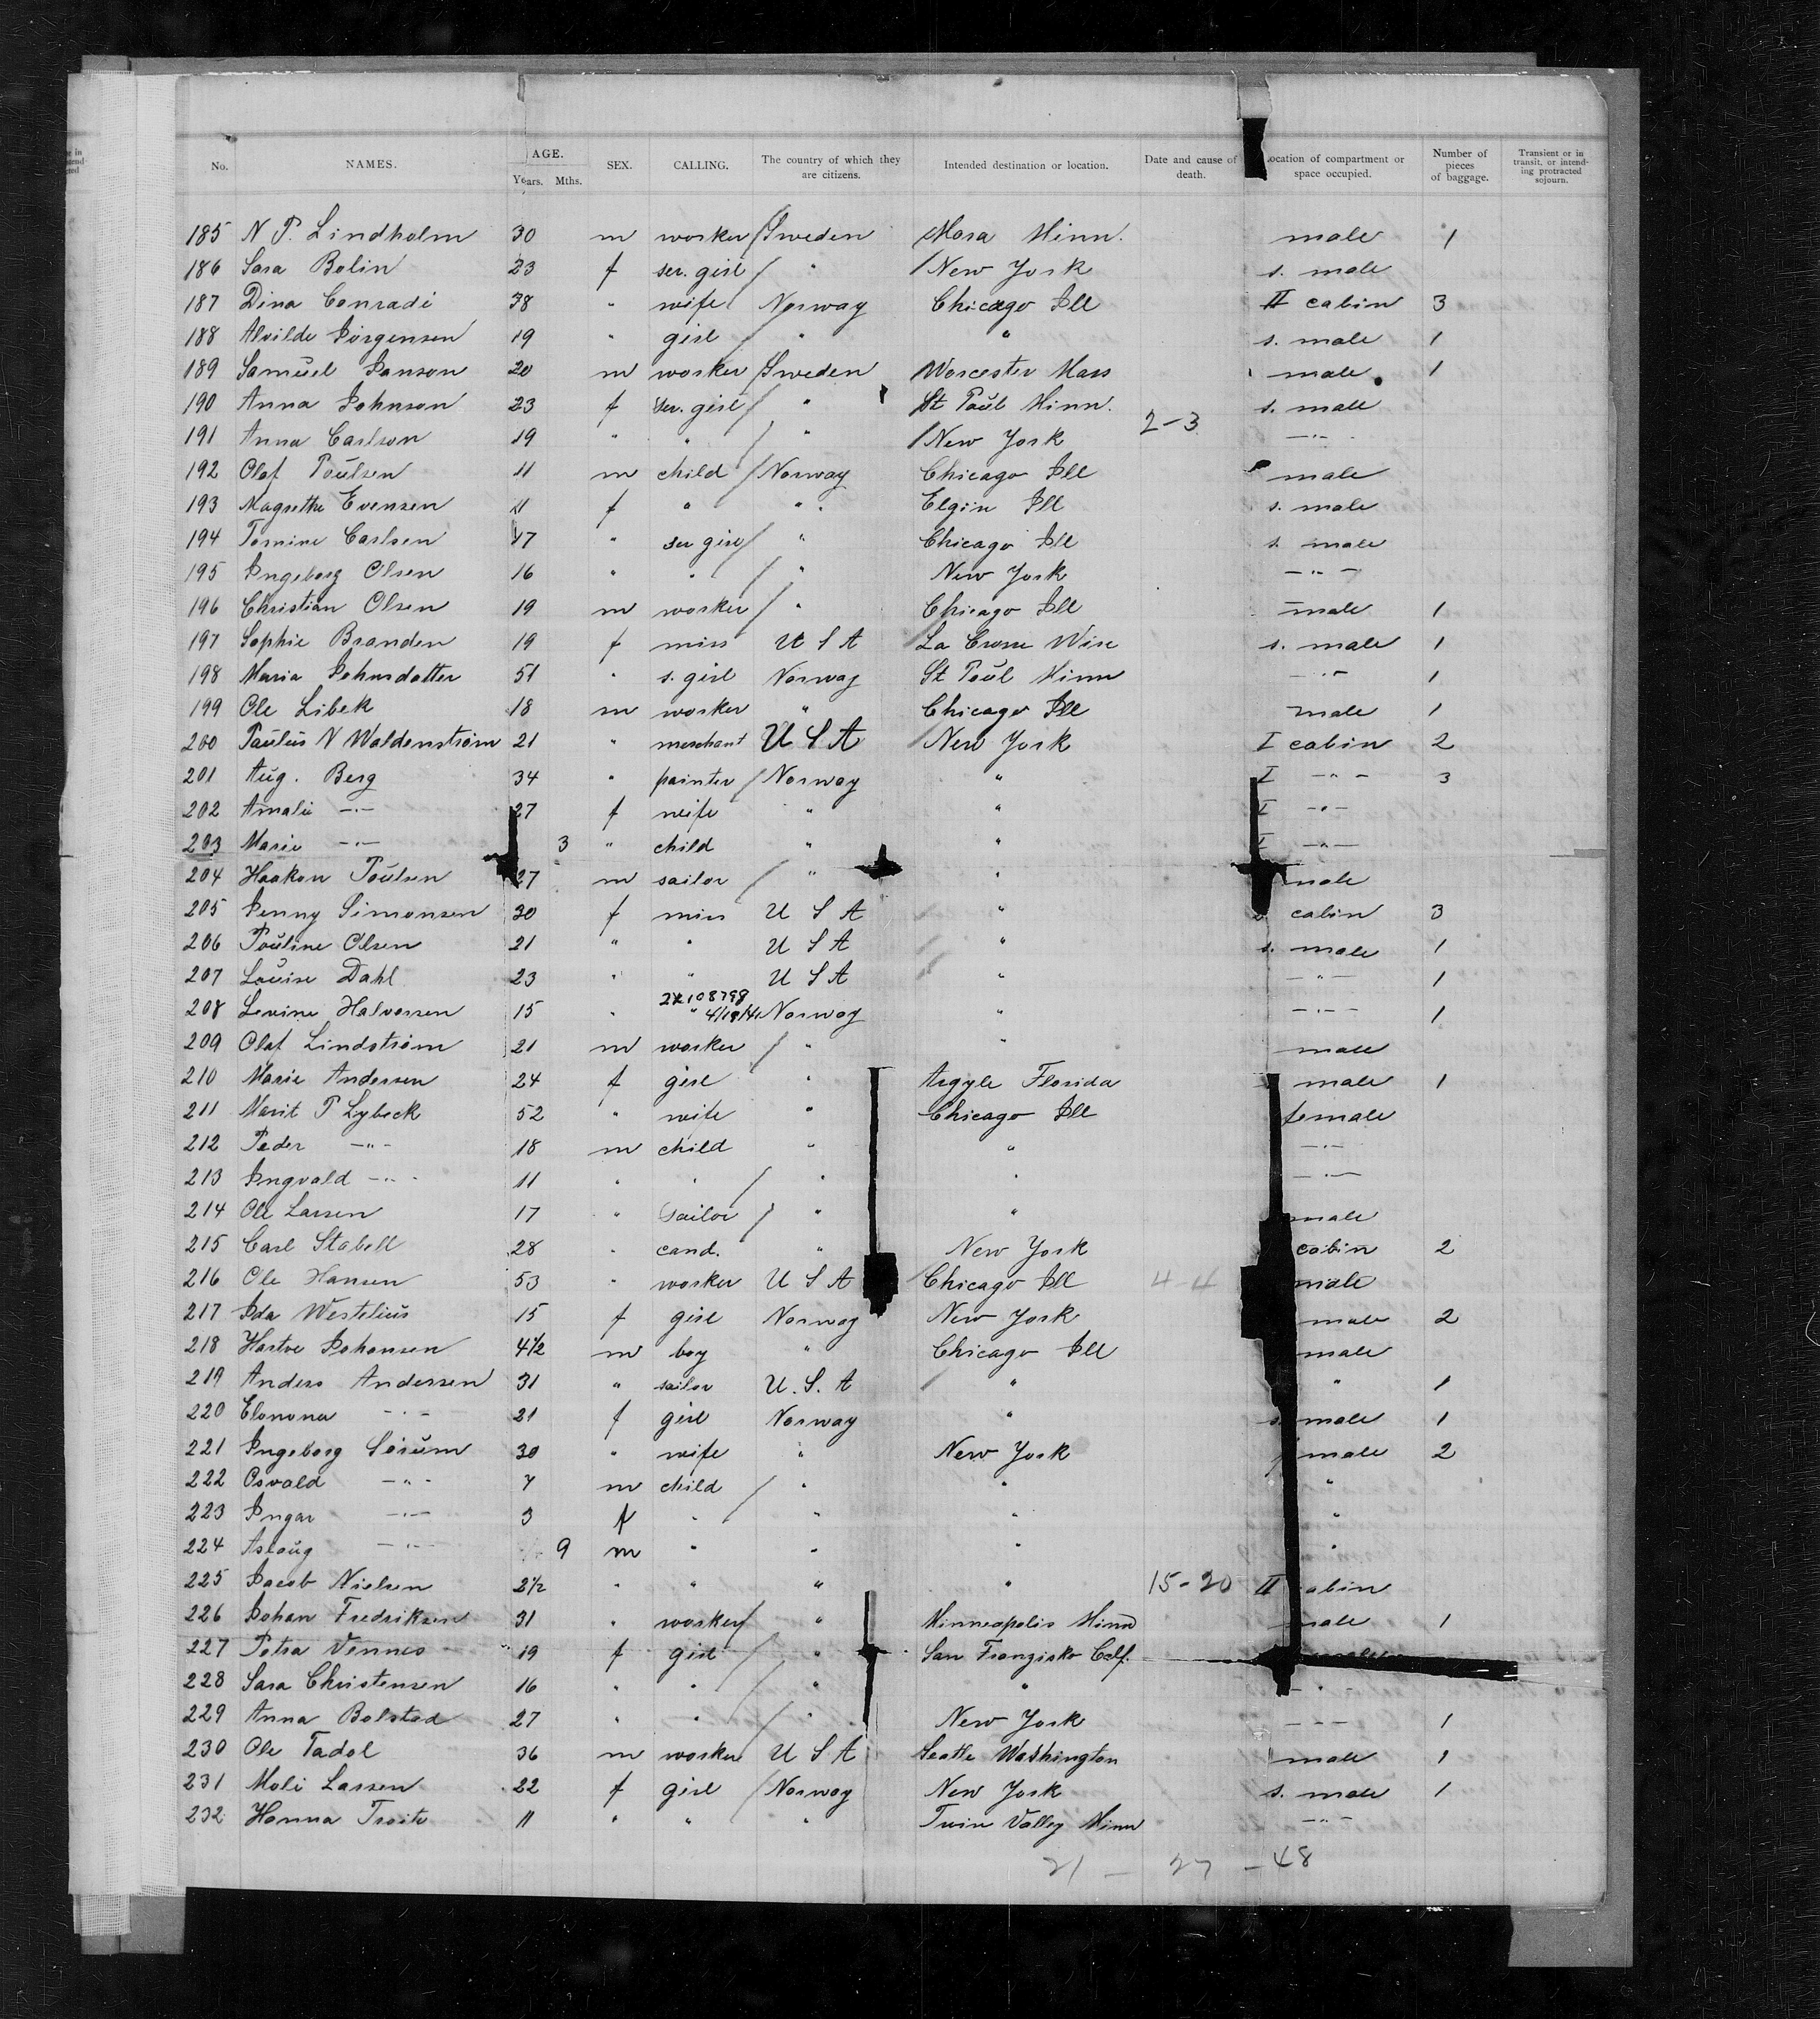 No. NAMES. AGE. Years. Mths. SEX. CALLING. The country of which they are citizens. Intended destination or location. Date and cause of death. ocation of compartment or space occupied. Number of pieces of baggage. Transient or in transit, or intending protracted sojourn.
185 N P. Lindholm 30 m worker Sweden Mora Minn. male 1
186 Sara Bolin 23 f ser. girl " New York s. male
187 Dina Conradi 38 " wife Norway Chicago Ill II cabin 3
188 Alvilde Jörgensen 19 " girl " " s. male 1
189 Samuel Janson 20 m worker Sweden Worcester Mass male 1
190 Anna Johnson 23 f ser. girl " St Paul Minn. s. male
191 Anna Carlson 19 " " " New York 2-3 —"—
192 Olaf Poulsen 11 m child Norway Chicago Ill male
193 Magrethe Evensen 11 f " " Elgin Ill s. male
194 Tomine Carlsen 17 " ser girl " Chicago Ill s. male
195 Ingeborg Olsen 16 " " " New York —"—
196 Christian Olsen 19 m worker " Chicago Ill male 1
197 Sophie Branden 19 f miss U S A La Crosse Wisc s. male 1
198 Maria Johnsdatter 51 " s. girl Norway St Paul Minn —"— 1
199 Ole Libek 18 m worker " Chicago Ill male 1
200 Paulus N Waldenström 21 " merchant U S A New York I cabin 2
201 Aug. Berg 34 " painter Norway " I —"— 3
202 Amalie —"— 27 f wife " " I —"—
203 Marie —"— 3 " child " " I —"—
204 Haakon Poulsen 27 m sailor " " male
205 Jenny Simonsen 30 f miss U S A " cabin 3
206 Pouline Olsen 21 " " U S A " s. male 1
207 Louise Dahl 23 " " U S A " —"— 1
2X108798
208 Levine Halvorsen 15 " " 4/19/41 Norway " —"— 1
209 Olaf Lindström 21 m worker " " male
210 Marie Andersen 24 f girl " Argyle Florida male 1
211 Marit P Lybeck 52 " wife " Chicago Ill female
212 Peder —"— 18 m child " " —"—
213 Ingvald —"— 11 " " " " —"—
214 Ole Larsen 17 " sailor " " male
215 Carl Stabell 28 " cand. " New York cabin 2
216 Ole Hansen 53 " worker U S A Chicago Ill 4-4 male
217 Ida Westelius 15 f girl Norway New York male 2
218 Hartve Johansen 4½ m boy " Chicago Ill male
219 Anders Andersen 31 " sailor U. S. A " " 1
220 Elonona —"— 21 f girl Norway " s. male 1
221 Ingeborg Sörum 30 " wife " New York male 2
222 Osvald —"— 7 m child " " "
223 Ingar —"— 3 f " " " "
224 Aslaug —"— 9 m " " " "
225 Jacob Nielsen 2½ " " " " 15-20 II cabin
226 Johan Fredriksen 31 " worker " Minneapolis Minn male 1
227 Petra Vennes 19 f girl " San Franzisko Calf.
228 Sara Christensen 16 " " " " —"—
229 Anna Bolstad 27 " " " New York —"— 1
230 Ole Tadol 36 m worker U S A Seatle Washington male 1
231 Moli Larsen 22 f girl Norway New York s. male 1
232 Hanna Troite 11 " " " Twin Valley Minn —"—
21 — 27 — 48